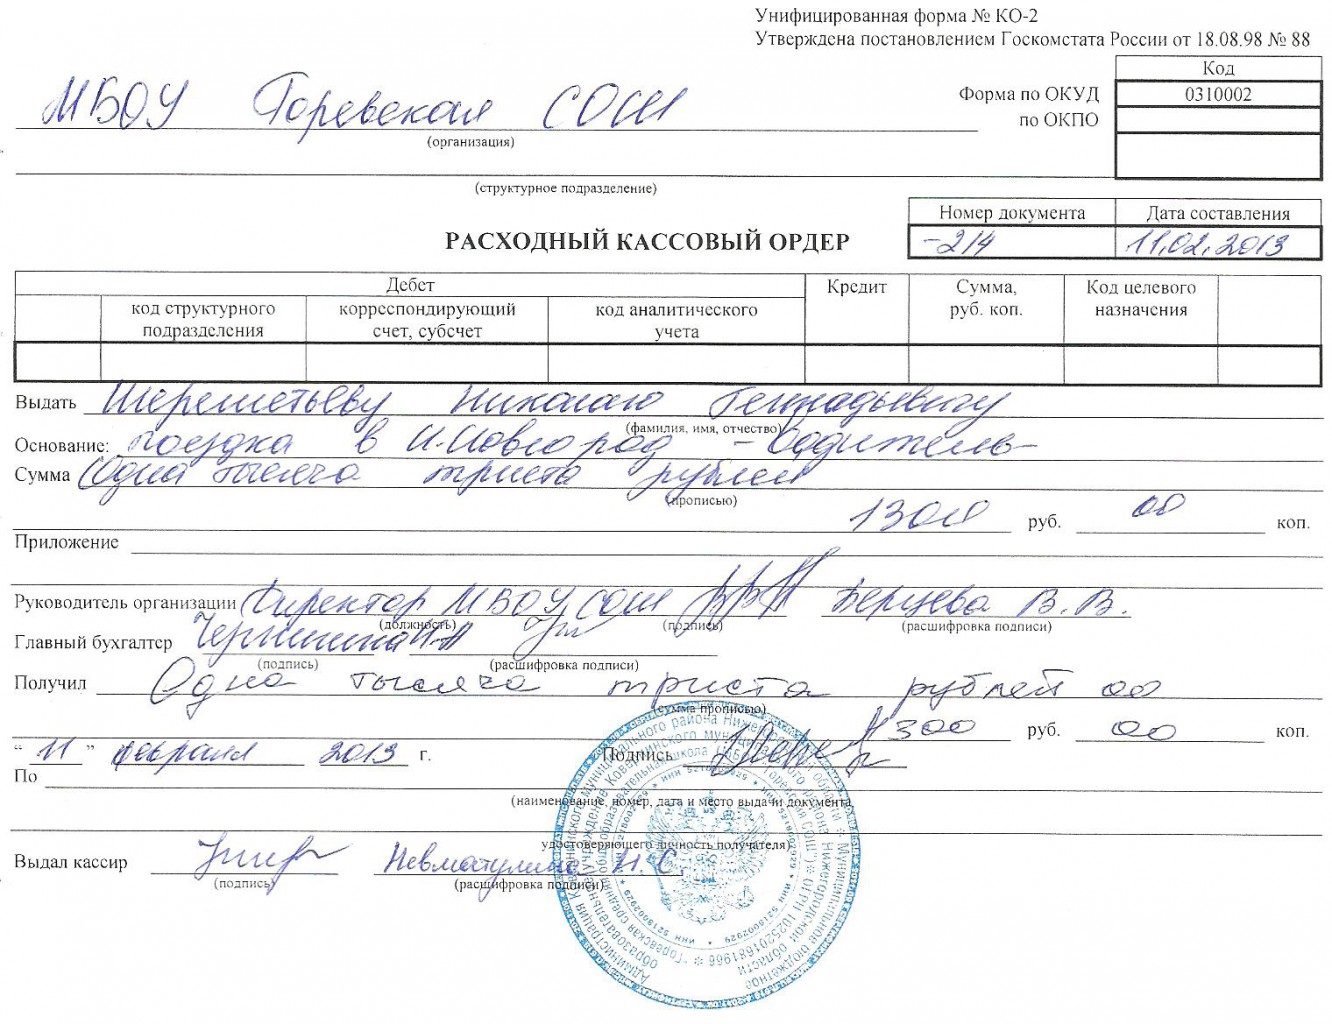 Унифицированная форма № КО-2
Утверждена постановлением Госкомстата России от 18.08.98 № 88
Код
Форма по ОКУД 0310002
по ОКПО
МБОУ Горевская СОШ
(организация)
(структурное подразделение)
Номер документа Дата составления
РАСХОДНЫЙ КАССОВЫЙ ОРДЕР -214 11.02.2013
Дебет Кредит Сумма, руб. коп. Код целевого назначения
код структурного подразделения корреспондирующий счет, субсчет код аналитического учета
Выдать Шереметьеву Николаю Геннадьевичу
(фамилия, имя, отчество)
Основание: поездка в Н-Новгород - водитель
Сумма Одна тысяча триста рублей
(прописью)
1300 руб. 00 коп.
Приложение
Руководитель организации Директор МБОУ СОШ Берцева В.В.
(должность) (подпись) (расшифровка подписи)
Главный бухгалтер
(подпись) (расшифровка подписи)
Получил Одна тысяча триста рублей 00
(сумма прописью)
1300 руб. 00 коп.
“ 11 ” февраля 2013 г. Подпись
По
(наименование, номер, дата и место выдачи документа,
удостоверяющего личность получателя)
Выдал кассир Н.С.
(подпись) (расшифровка подписи)